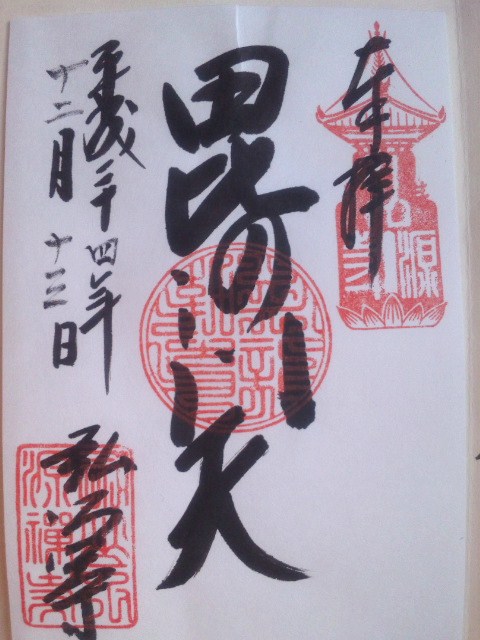 奉拝
毘沙門天
平成二十四年
十二月十三日
弘源寺